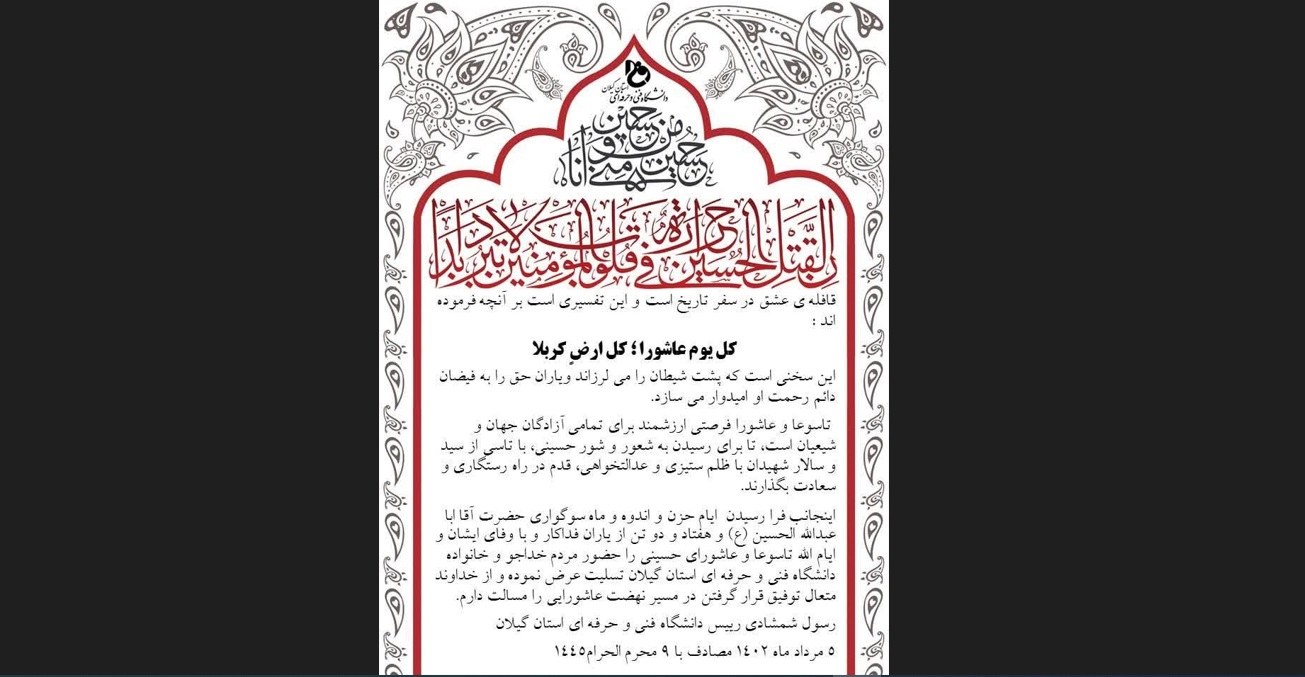 استان گیلان
دانشگاه فنی و حرفه‌ای
حسین
منی و
حسین
انا من
ان لقتل الحسین حرارة فی قلوب المؤمنین لا تبرد ابدا
قافله ی عشق در سفر تاریخ است و این تفسیری است بر آنچه فرموده
اند :
کل یوم عاشورا؛ کل ارضٍ کربلا
این سخنی است که پشت شیطان را می لرزاند ویاران حق را به فیضان
دائم رحمت او امیدوار می سازد.
تاسوعا و عاشورا فرصتی ارزشمند برای تمامی آزادگان جهان و
شیعیان است، تا برای رسیدن به شعور و شور حسینی، با تاسی از سید
و سالار شهیدان با ظلم ستیزی و عدالتخواهی، قدم در راه رستگاری و
سعادت بگذارند.
اینجانب فرا رسیدن ایام حزن و اندوه و ماه سوگواری حضرت آقا ابا
عبدالله الحسین (ع) و هفتاد و دو تن از یاران فداکار و با وفای ایشان و
ایام الله تاسوعا و عاشورای حسینی را حضور مردم خداجو و خانواده
دانشگاه فنی و حرفه ای استان گیلان تسلیت عرض نموده و از خداوند
متعال توفیق قرار گرفتن در مسیر نهضت عاشورایی را مسالت دارم.
رسول شمشادی رییس دانشگاه فنی و حرفه ای استان گیلان
۵ مرداد ماه ۱۴۰۲ مصادف با ۹ محرم الحرام۱۴۴۵